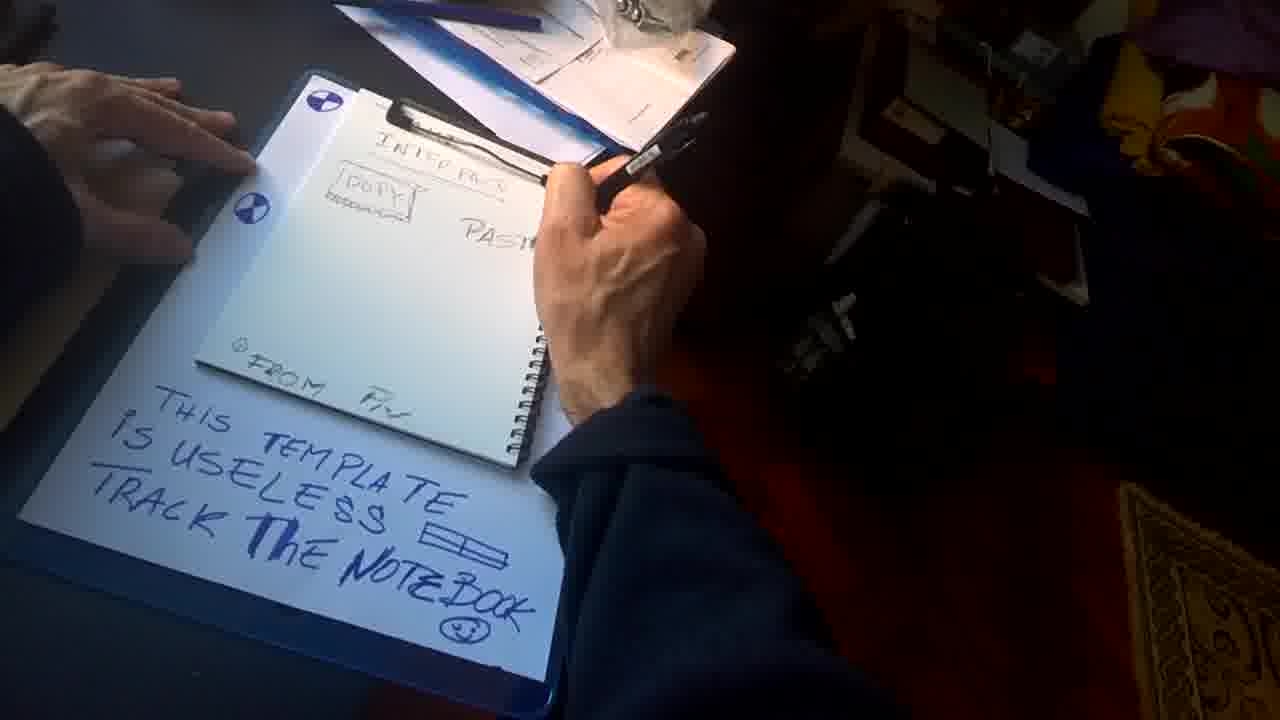 INTERFACE
COPY
PAST
FROM
THIS TEMPLATE
iS USELESS
TRACK ThE NOTEBOOK